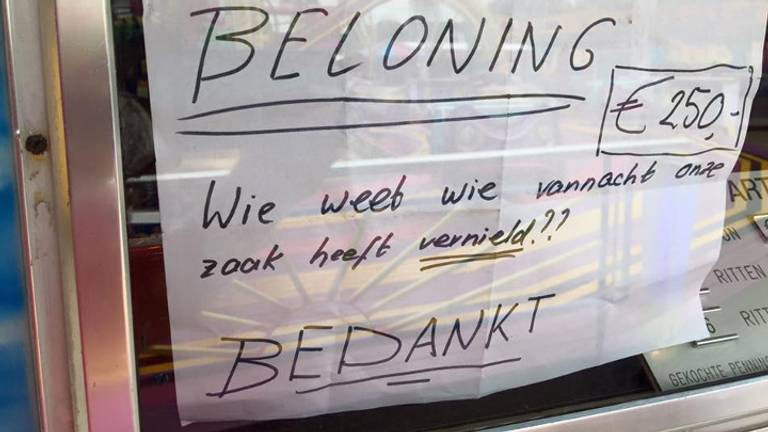 BELONING
€ 250,-
Wie weet wie vannacht onze
zaak heeft vernield.??
BEDANKT
ART
RITTEN
6 RIT
GEKOCHTE PENNING